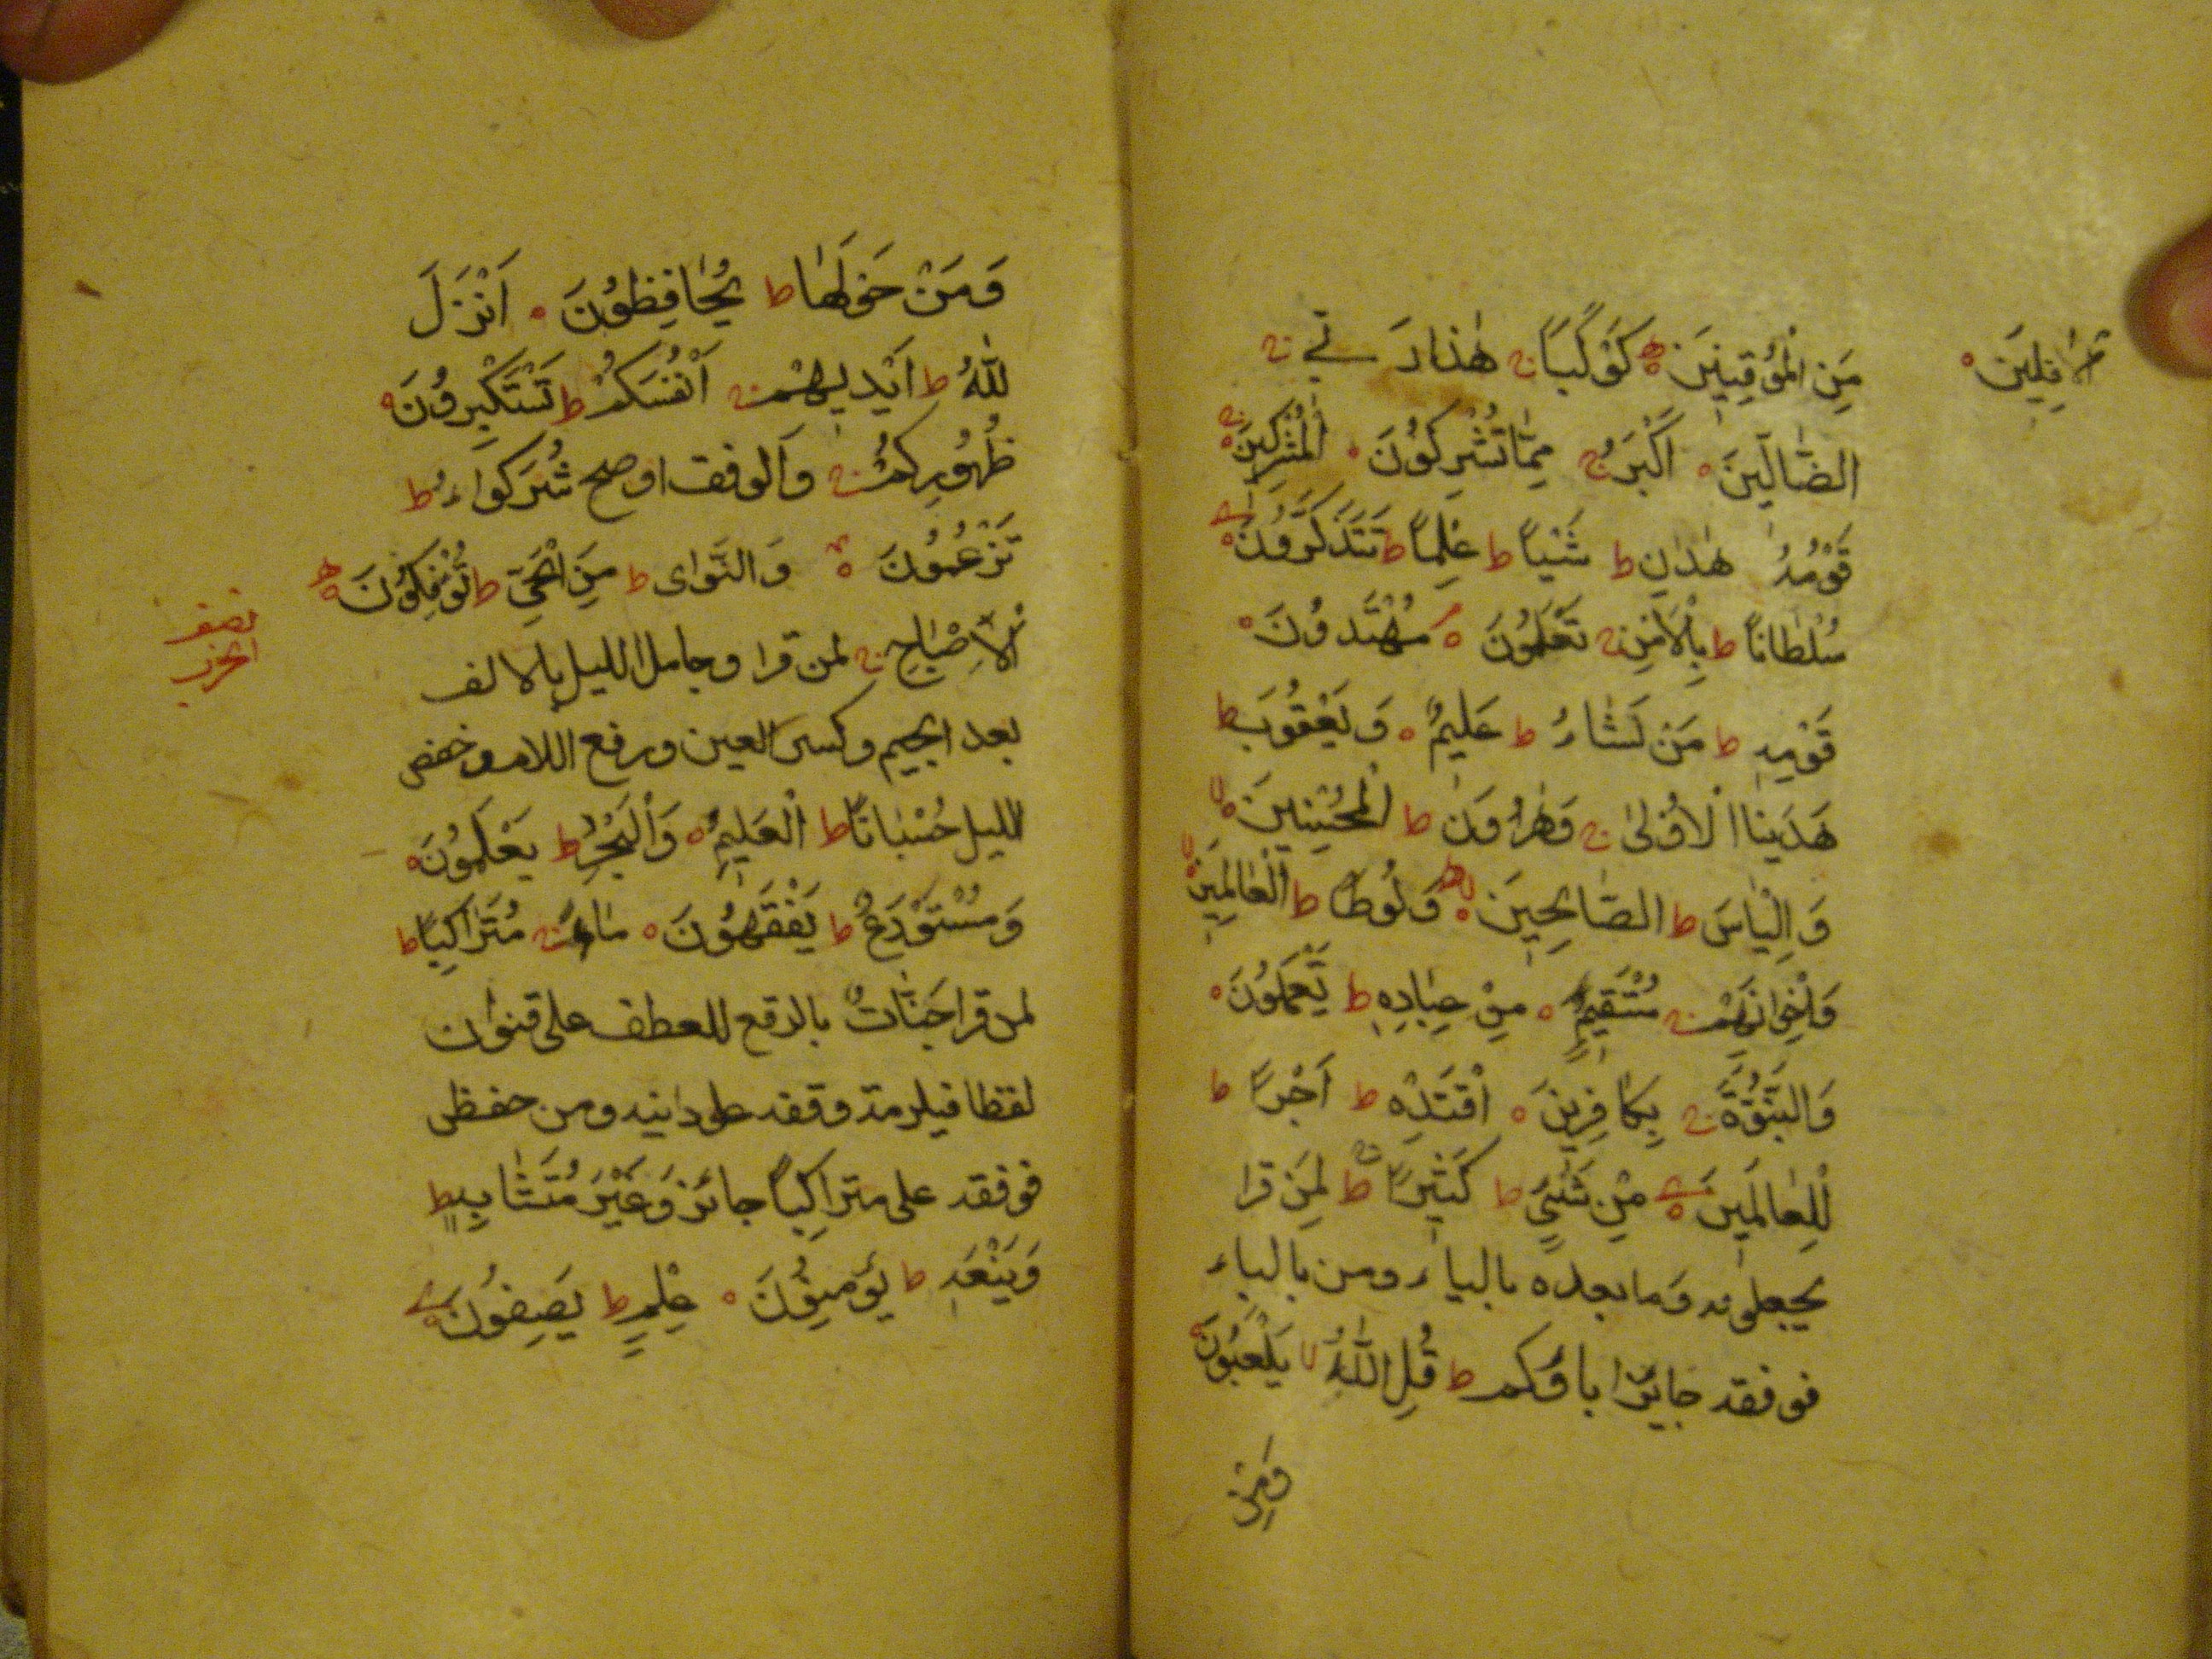 مِنَ الْمُوقِنِينَ ه كَوْكَبًا ج هٰذَا رَبِّي ج
الْاٰفِلِينَ ه
الضَّالِّينَ ه اَكْبَرُ ج مِمَّا تُشْرِكُونَ ه الْمُشْرِكِينَ ج
قَوْمُهُ هَدٰينِ ط شَيْئًا ط عِلْمًا ط تَتَذَكَّرُونَ
سُلْطَانًا ط بِالْاَمْنِ ج تَعْلَمُونَ ه مُهْتَدُونَ ه
قَوْمِهِ ط مَنْ نَشَاءُ ط عَلِيمٌ ه وَيَعْقُوبَ ط
هَدَيْنَا الْاُولٰى ج وَهٰرُونَ ط الْمُحْسِنِينَ لا
وَاِلْيَاسَ ط الصَّالِحِينَ وَلُوطًا ط الْعَالَمِينَ لا
وَاِخْوَانِهِمْ ج مُسْتَقِيمٍ ه مِنْ عِبَادِهِ ط يَعْمَلُونَ ه
وَالنُّبُوَّةَ ج بِكَافِرِينَ ه اقْتَدِهْ ط اَجْرًا ط
لِلْعَالَمِينَ مِنْ شَيْءٍ ط كَثِيرًا ط لِمَنْ قرا
يجعلونه وما بعده بالياء ومن بالياء
فوقفه جايز اباؤكم ط قُلِ اللّٰهُ لا يَلْعَبُونَ ه
وَمَنْ
وَمَنْ حَوْلَهَا ط يُحَافِظُونَ ه اَنْزَلَ
اللّٰهُ ط اَيْدِيهِمْ ج اَنْفُسَكُمْ ط تَسْتَكْبِرُونَ ه
ظُهُورِكُمْ ج والوقف اوضح شُرَكٰؤُا ط
تَزْعُمُونَ ه وَالنَّوٰى ط مِنَ الْحَيِّ ط تُؤْفَكُونَ ه
نصف
الحزب
الْاِصْبَاحِ ج لمن قرا وجاعل الليل بالالف
بعد الجيم وكسر العين ورفع اللام وخفض
الليل حُسْبَانًا ط الْعَلِيمِ ه وَالْبَحْرِ ط يَعْلَمُونَ ه
وَمُسْتَوْدَعٌ ط يَفْقَهُونَ ه مَاءً ج مُتَرَاكِبًا ط
لمن قرا جَنَّاتٌ بالرفع للعطف على قنوان
لفظا فيلزمه وقفه على دانية ومن خفض
فوقفه على متراكبًا جائز وَغَيْرَ مُتَشَابِهٍ ط
وَيَنْعِهِ ط يُؤْمِنُونَ ه عِلْمٍ ط يَصِفُونَ